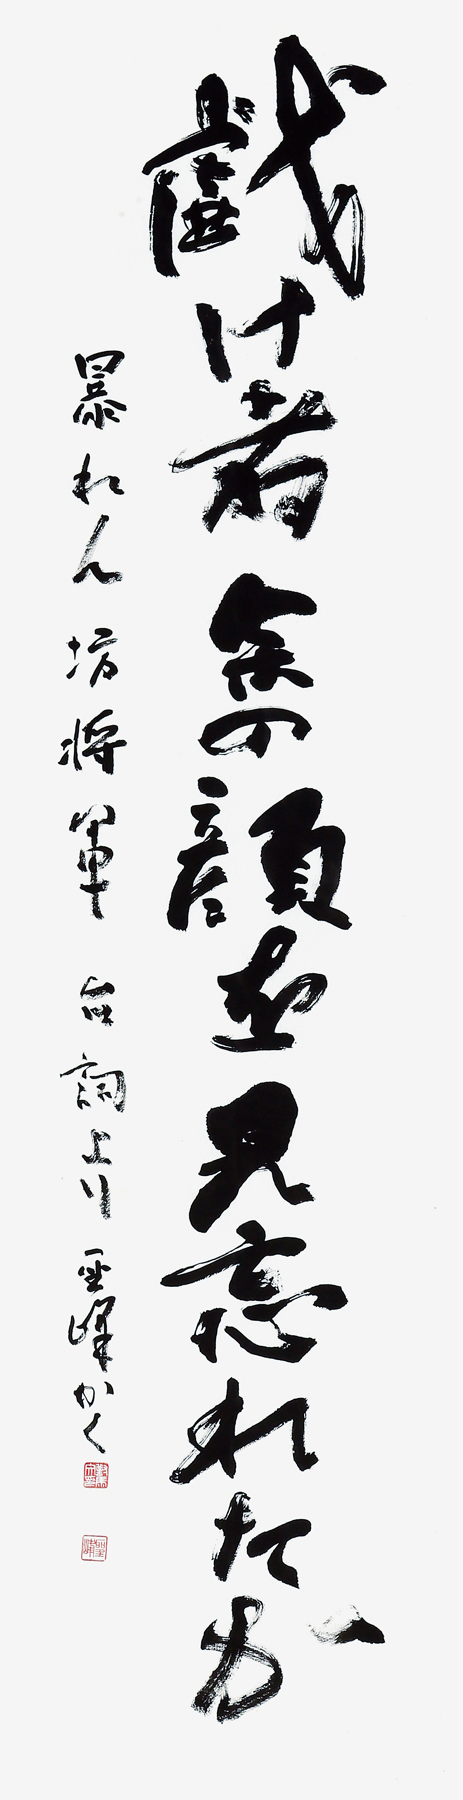 戯け者余の顔を見忘れたか
暴れん坊将軍台詞より聖峰かく